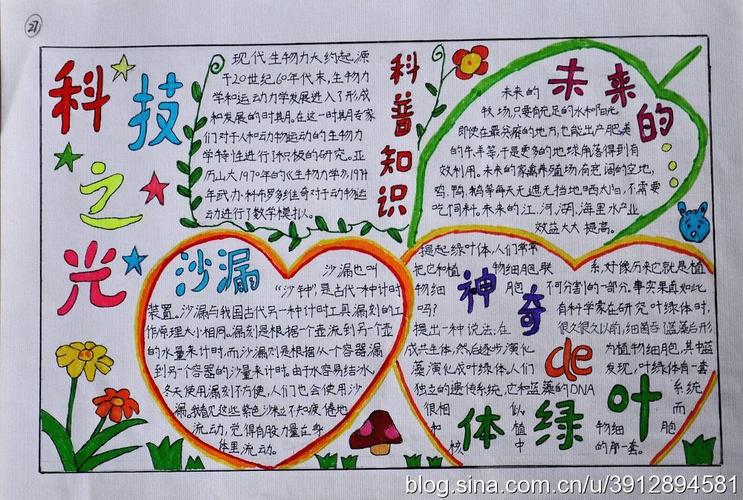 27
科技之光
现代生物力大约起源
于20世纪60年代末,生物力
学和运动力学发展进入了形成
和发展的时期。在这一时期专家
们对于人和动物运动的生物力
学特性进行了积极的研究。亚
历山大,1970年的《生物力学》,1971
年武.力.科布罗多维奇对于动物运
动进行了数学模拟。
科普知识
未来的
未来的
牧场,只要有充足的水和阳光。
即使在最分瘠的地方,也能出产肥美
的牛,羊等,于是更多的地球角落得到有
效利用。未来的家禽养殖场,有宽阔的空地,
鸡,鸭,鹅等每天无遮无挡地晒太阳,不需要
吃饲料。未来的江,河,湖,海里水产业
效益大大提高。
沙漏
沙漏也叫
“沙钟”,是古代一种计时
装置。沙漏与我国古代另一种计时工具漏刻的工
作原理大小相同。漏刻是根据一个壶流到另一个壶
的水量来计时,而沙漏则是根据从一个容器漏
到另一个容器的沙量来计时。由于水容易结冰,
冬天使用漏刻不方便,人们也会使用沙
漏。我看见这些紫色沙粒不知疲倦地
流动,觉得有股力量在身
体里流动。
神奇de叶绿体
提起绿叶体,人们常常
把它和植物细胞联系,好像历来它就是植
物细胞不可分割的一部分。事实果真如此
吗?有科学家在研究叶绿体时,
提出一种说法:在很久很久以前,细菌吞了蓝藻后形
成共生体,然后逐步演化为植物细胞,其中蓝
藻演化成叶绿体。人们发现,叶绿体有一套
独立的遗传系统,它和蓝藻的DNA系统
很相似,而
和植物细胞
核中的那一套。
blog.sina.com.cn/u/3912894581